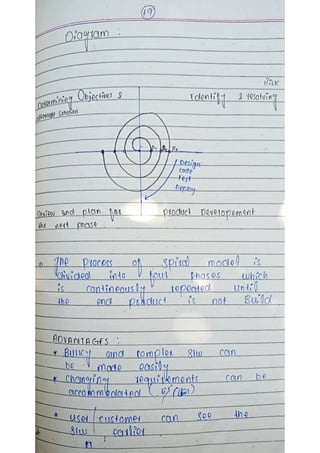 19
Diagram :
Risk
Determining Objectives &
Identify & resolving
alternate solution
P1 P2 P3
Design
code
Test
Deploy
Review and plan for
product Developement
the next phase
The process of spiral model is
Divided into four phases which
is contineously repeated until
the end product is not Build
ADVANTAGES :
* Bulky and complex s/w can
be made easily
* changing requirements can be
accommodated
* user / customer can see the
s/w earlier.